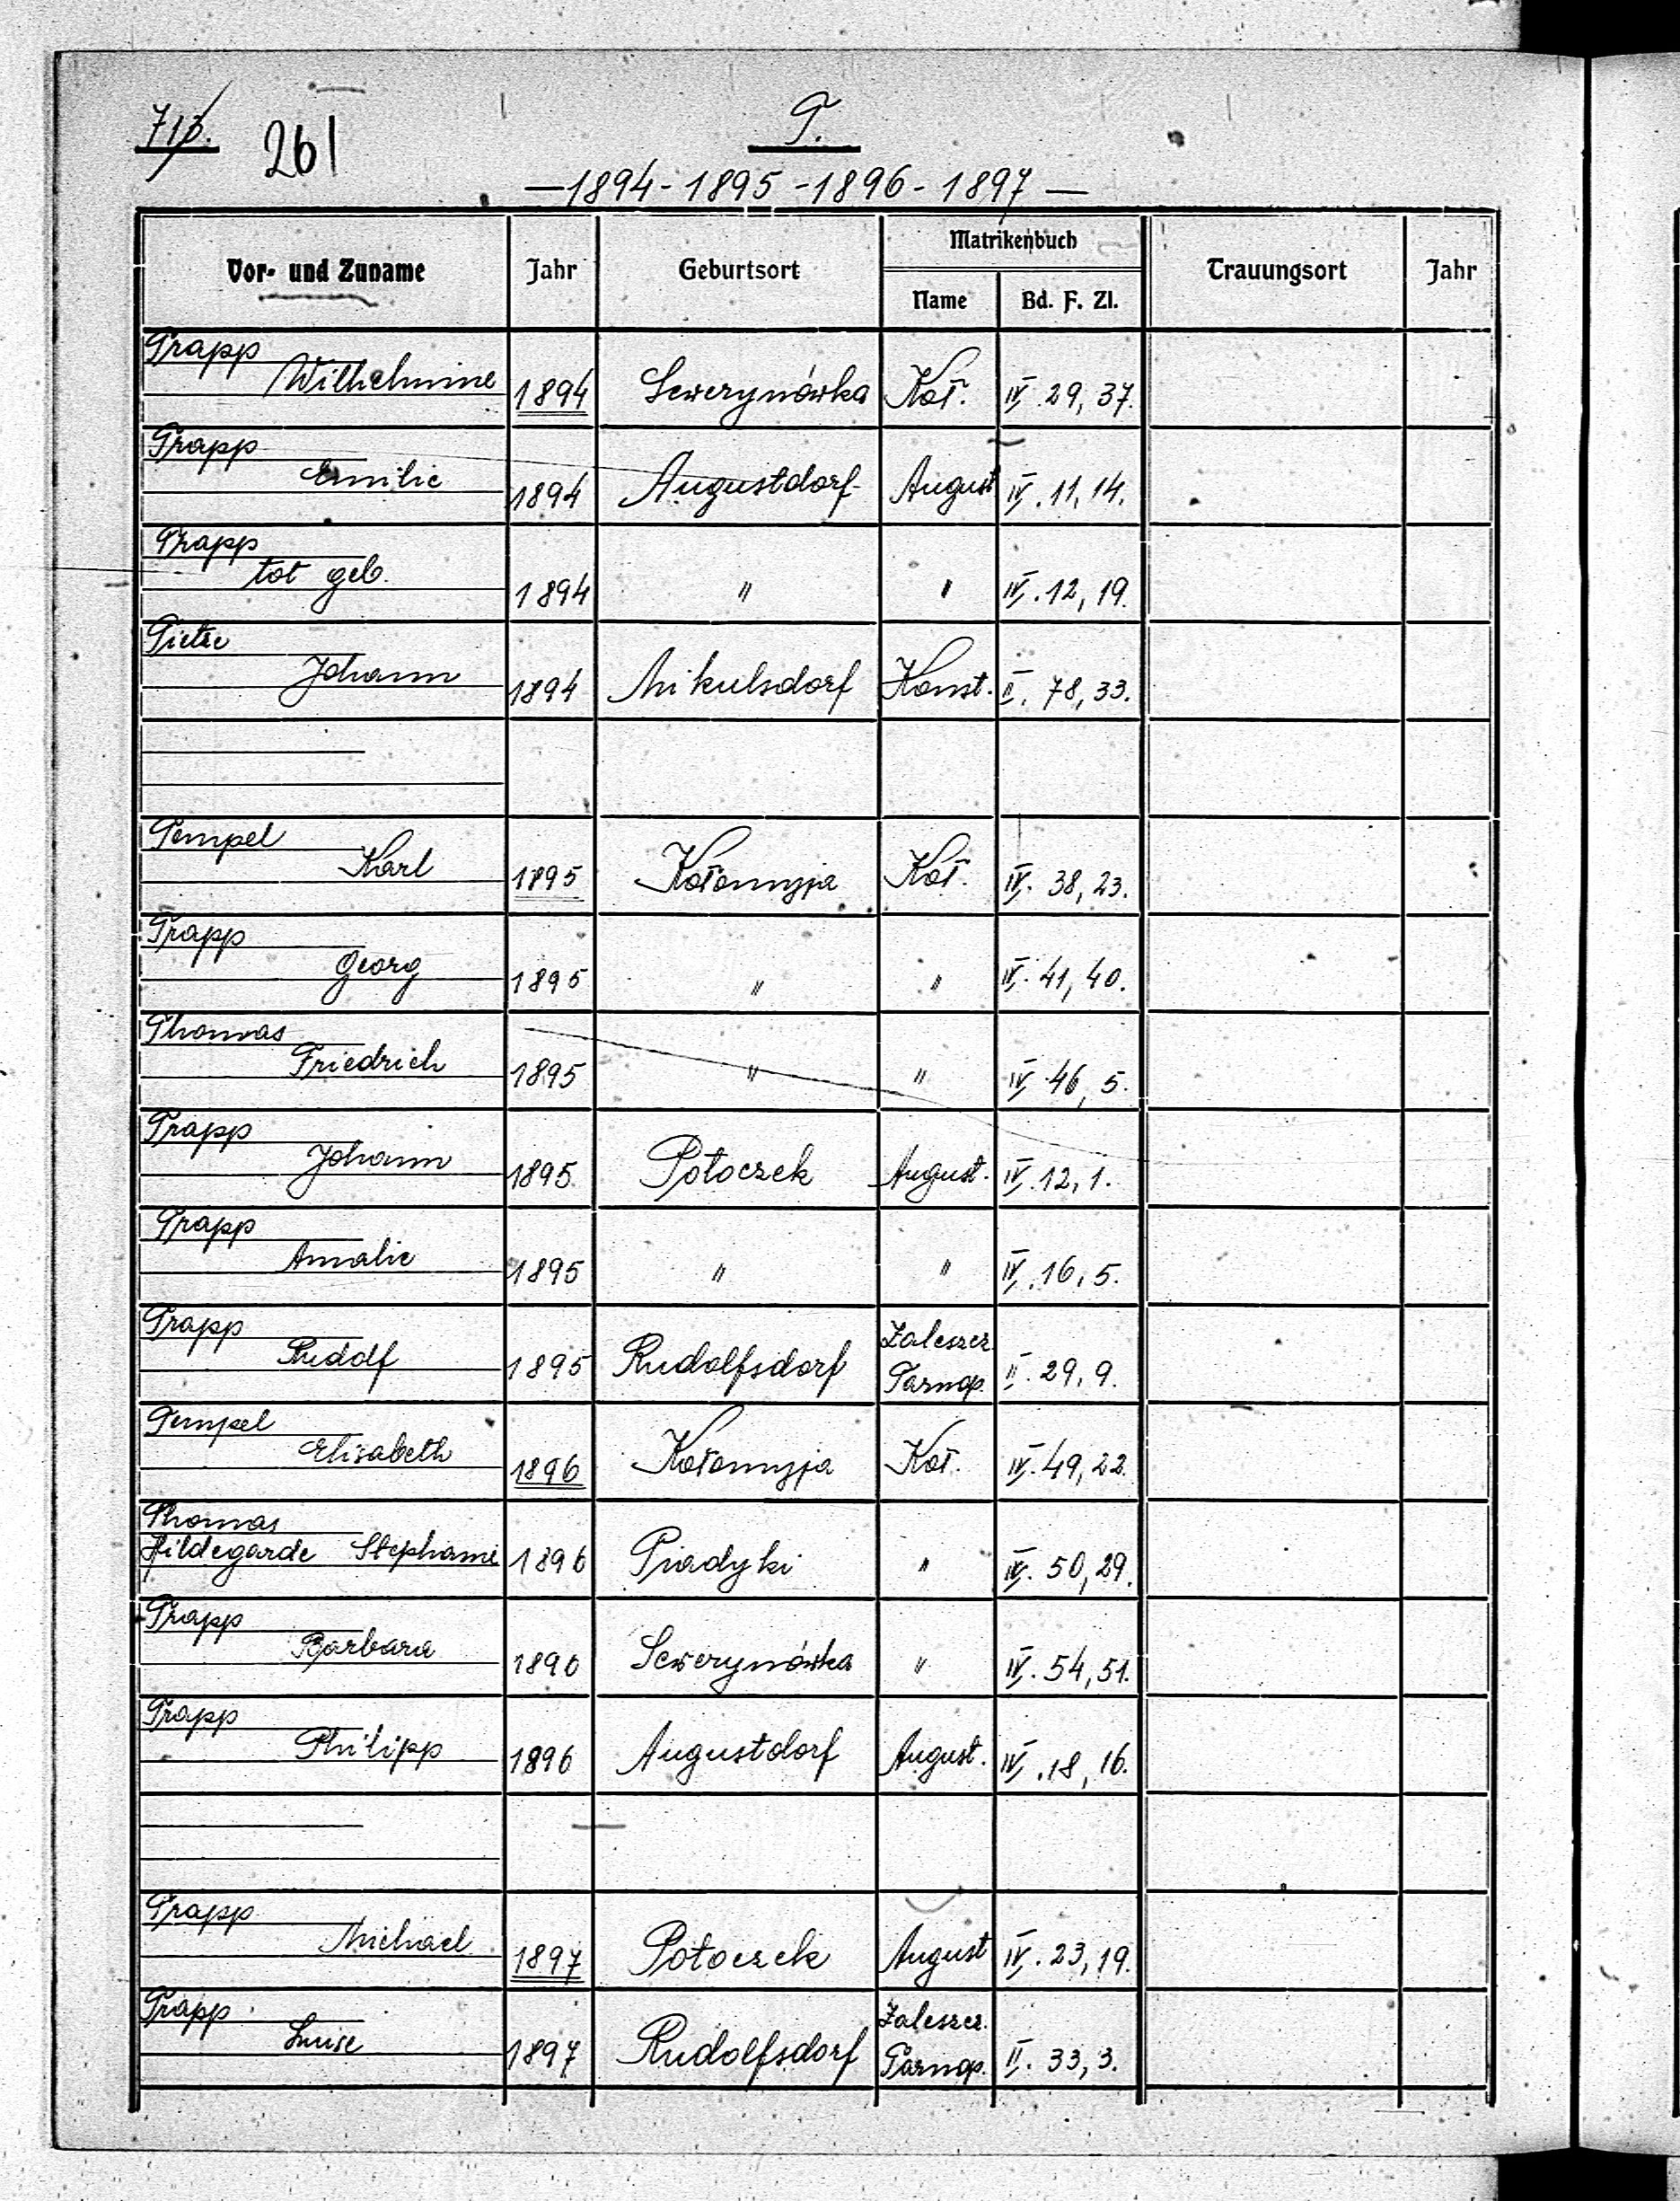 713.
261
T.
—1894-1895-1896-1897—
Vor- und Zuname Jahr Geburtsort Matrikenbuch Trauungsort Jahr
Name Bd. F. Zl.
Trapp
Wilhelmine 1894 Sewerynówka Koł. IV. 29, 37.
Trapp
Emilie 1894 Augustdorf August IV. 11, 14.
Trapp
tot geb. 1894 " " IV. 12, 19.
Johann 1894 Mikulsdorf Konst. II. 78, 33.
Tempel
Karl 1895 Kołomyja Koł. IV. 38, 23.
Trapp
Georg 1895 " " IV. 41, 40.
Thomas
Friedrich 1895 " " IV. 46, 5.
Trapp
Johann 1895 Potoczek August. IV. 12, 1.
Trapp
Amalie 1895 " " IV. 16, 5.
Trapp
Rudolf 1895 Rudolfsdorf Zaleszcz. Tarnop. II. 29, 9.
Tempel
Elisabeth 1896 Kołomyja Koł. IV. 49, 22.
Thomas
Hildegarde Stephanie 1896 Piadyki " IV. 50, 29.
Trapp
Barbara 1896 Sewerynówka " IV. 54, 51.
Trapp
Philipp 1896 Augustdorf August. IV. 18, 16.
Trapp
Michael 1897 Potoczek August IV. 23, 19.
Trapp
Luise 1897 Rudolfsdorf Zaleszcz. Tarnop. II. 33, 3.